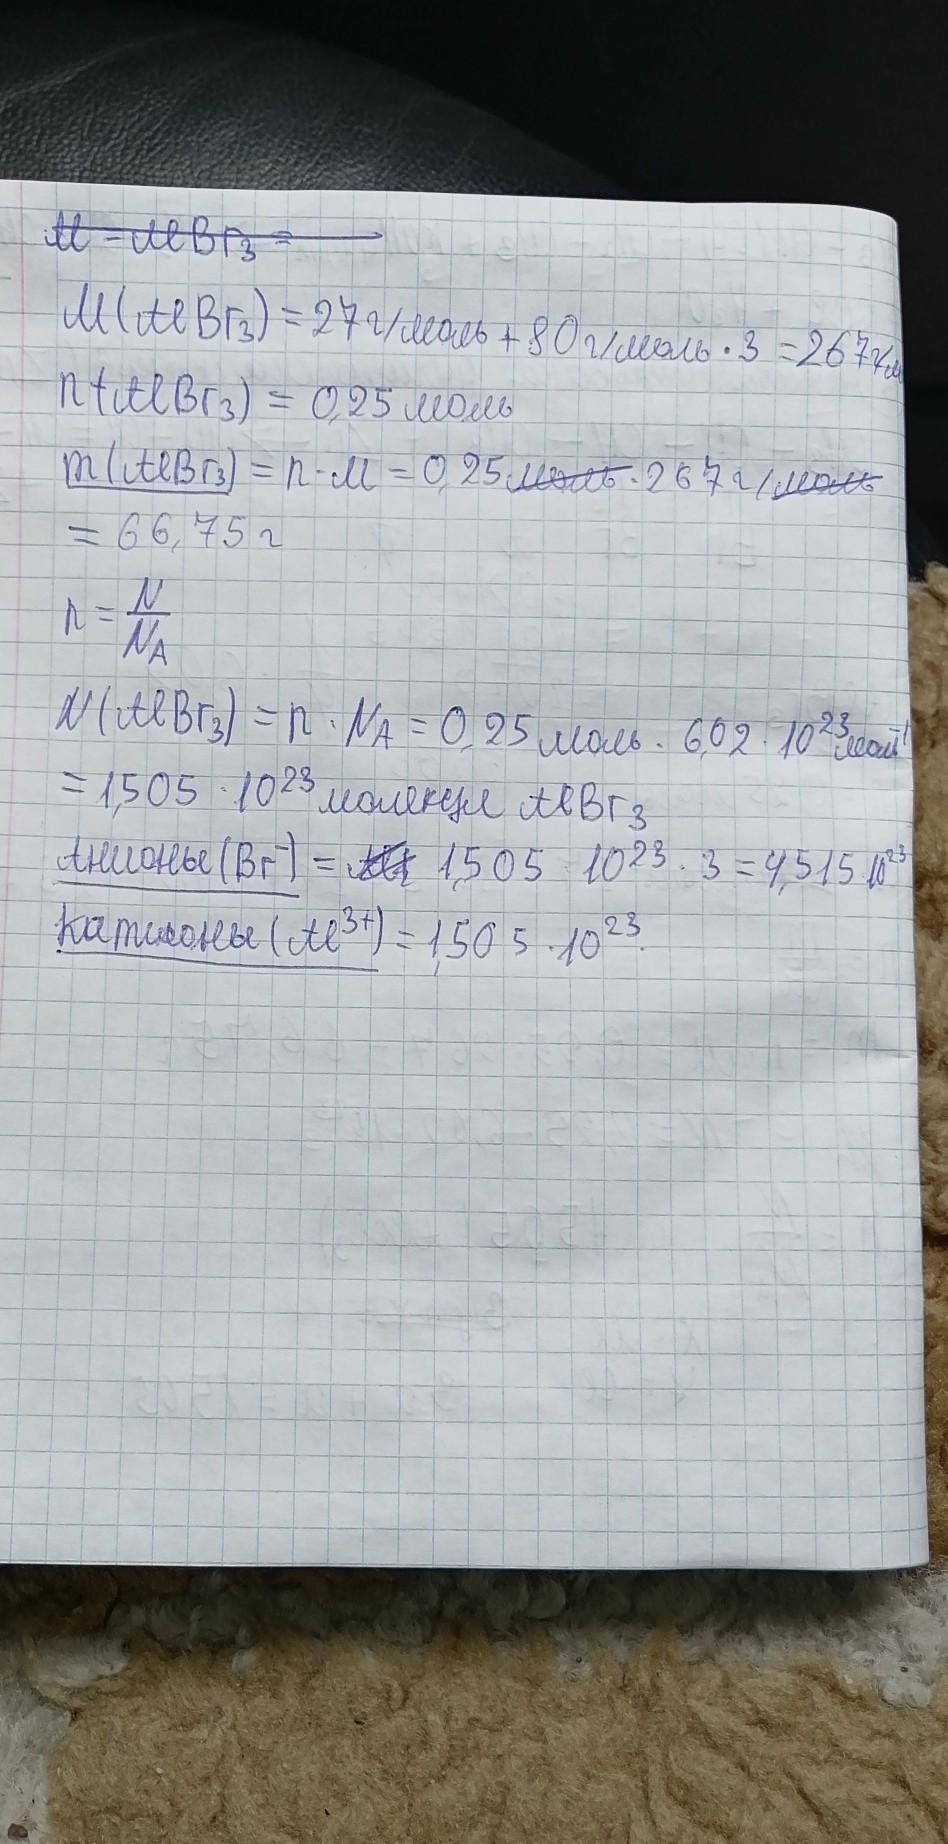 M - AlBr₃ =
M(AlBr₃) = 27 г/моль + 80 г/моль · 3 = 267 г/м
n(AlBr₃) = 0,25 моль
m(AlBr₃) = n · M = 0,25 моль · 267 г/моль
= 66,75 г
n = N/Nₐ
N(AlBr₃) = n · Nₐ = 0,25 моль · 6,02 · 10²³ моль⁻¹
= 1,505 · 10²³ молекул AlBr₃
Анионы (Br⁻) = 1,505 · 10²³ · 3 = 4,515 · 10²³
Катионы (Al³⁺) = 1,505 · 10²³.